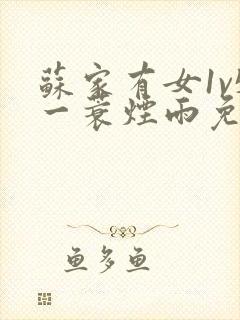 蘇家有女1v
一蓑煙雨免
鱼多鱼